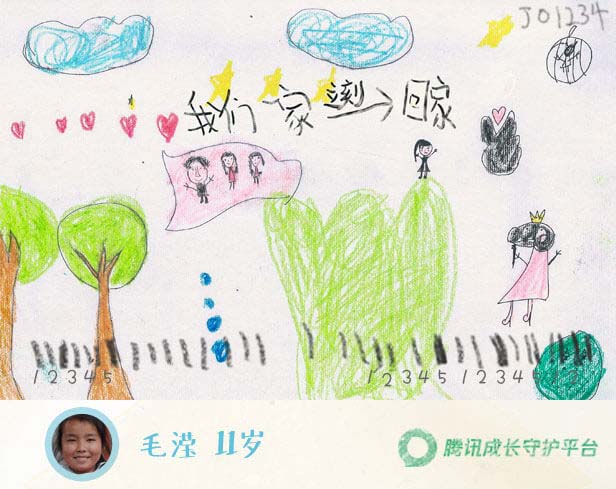 J01234
我们一家立刻→回家
12345
1234512345
毛滢 11岁
腾讯成长守护平台